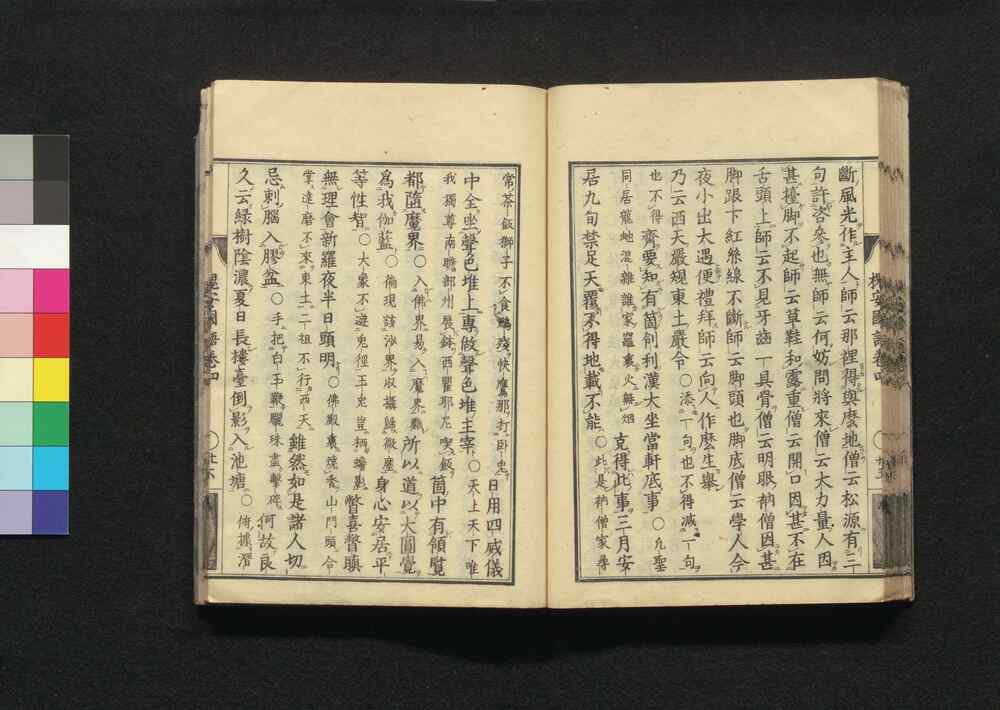 斷風光作主人師云那裡得與麼地僧云松源有三
句許咨參也無師云何妨問將來僧云大力量人因
甚擡脚不起師云草鞋和露重僧云開口因甚不在
舌頭上師云不見牙齒一具骨僧云明眼衲僧因甚
脚跟下紅絲線不斷師云脚頭也脚底僧云學人今
夜小出大遇便禮拜師云向人作麼生擧
乃云西天嚴規東土嚴令○添一句也不得減一句
也不得齊要知有箇伶利漢大坐當軒底事○凡聖
同居龍蛇混雜誰家竈裏火無烟克得此事三月安
居九旬禁足天覆不得地載不能○此是衲僧家尋
槐安國語卷四
○廿五
常茶飯獅子不食鵰殘快鷹那打臥兎日用四威儀
中全坐聲色堆上專做聲色堆主宰○天上天下唯
我獨尊南瞻部州展鉢西瞿耶尼喫飯箇中有傾覧
都隨魔界○入佛界易入魔界難所以道以大圓覺
爲我伽藍○倘現該沙界收攝歸微塵身心安居平
等性智○大象不遊兎徑王兎豈栖蟾影瞥喜瞥瞋
無理會新羅夜半日頭明○佛殿裏燒香山門頭合
掌達磨不來東土二祖不行西天雖然如是諸人切
忌刺腦入膠盆○手把白玉鞭驪珠盡擊碎何故良
久云綠樹陰濃夏日長樓臺倒影入池塘○
槐安國語卷四
○廿六